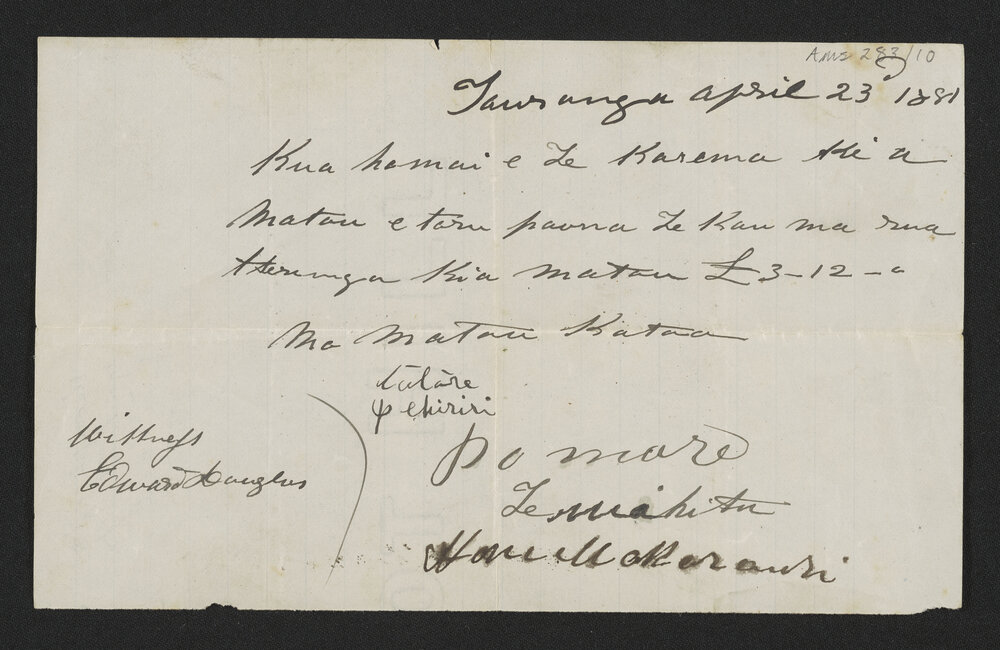 Ams 283/10
Tauranga April 23 1881
Kua homai e Te Karema ki a
Matou e toru pauna Te Kau ma rua
Herenga Kia matou £3-12-0
Ma Matou Katoa
tutāre
pehiriri
Pomare
Te Mahitu
Hone
Wittness
Edward Douglas